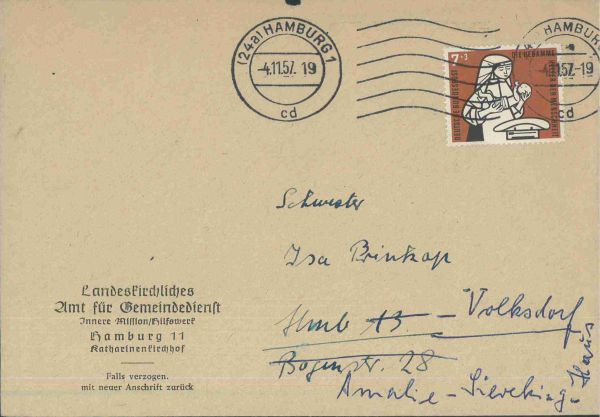 (24a) HAMBURG 1
-4.11.57. 19
cd
HAMBURG
11.57.-19
cd
7+3
DIE HEBAMME
DEUTSCHE BUNDESPOST
HELFER DER MENSCHHEIT
Schwester
Isa Brinkop
Hmb 13 - Volksdorf
Bogenstr. 28
Amalie-Sieveking-
Haus
Landeskirchliches
Amt für Gemeindedienst
Innere Mission/Hilfswerk
Hamburg 11
Katharinenkirchhof
Falls verzogen,
mit neuer Anschrift zurück